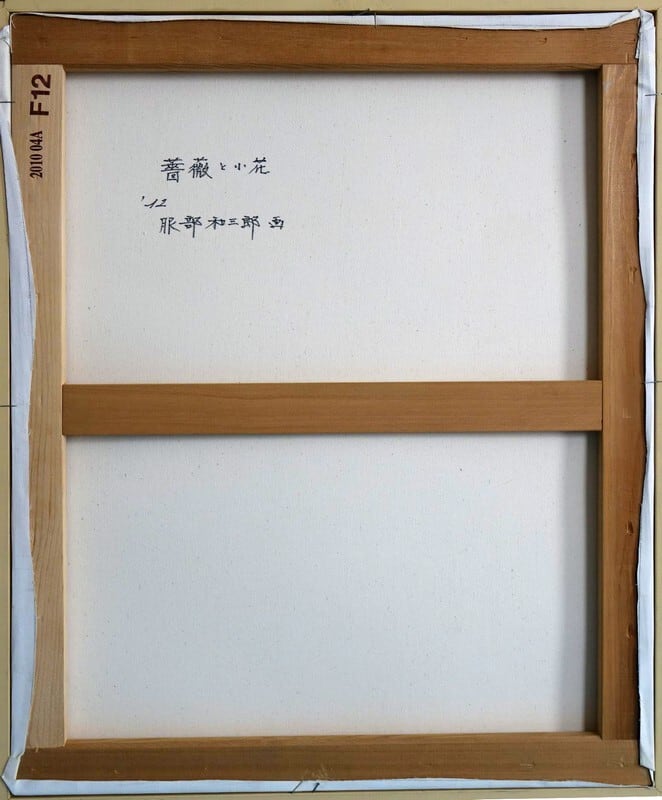 F12
2010 04A
薔薇と小花
'12
服部和三郎 画